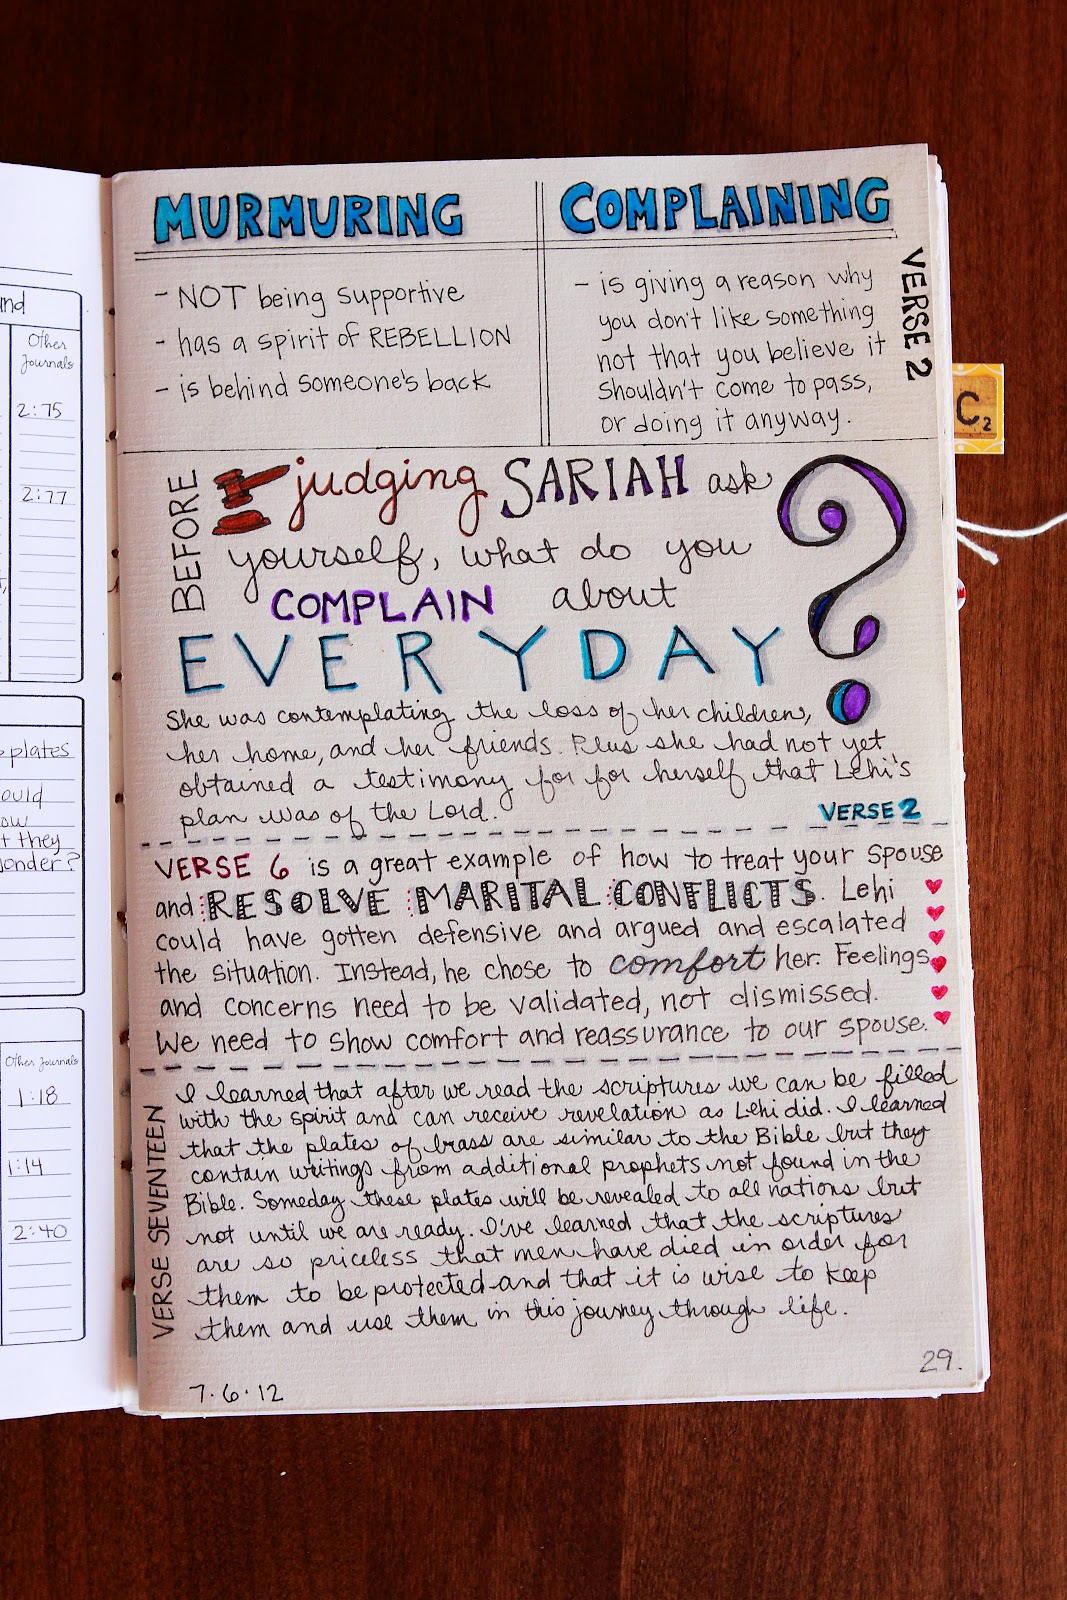 und
Other
Journals
2:75
2:77
plates
ould
ow
t they
onder?
Other Journals
1:18
1:14
2:40
MURMURING
- NOT being supportive
- has a spirit of REBELLION
- is behind someone's back
COMPLAINING
- is giving a reason why
you don't like something
not that you believe it
shouldn't come to pass,
or doing it anyway.
VERSE 2
C2
BEFORE
judging SARIAH ask
yourself, what do you
COMPLAIN about
EVERYDAY?
She was contemplating the loss of her children,
her home, and her friends. Plus she had not yet
obtained a testimony for for herself that Lehi's
plan was of the Lord.
VERSE 2
VERSE 6 is a great example of how to treat your spouse
and RESOLVE MARITAL CONFLICTS. Lehi
could have gotten defensive and argued and escalated
the situation. Instead, he chose to comfort her. Feelings
and concerns need to be validated, not dismissed.
We need to show comfort and reassurance to our spouse.
VERSE SEVENTEEN
I learned that after we read the scriptures we can be filled
with the spirit and can receive revelation as Lehi did. I learned
that the plates of brass are similar to the Bible but they
contain writings from additional prophets not found in the
Bible. Someday these plates will be revealed to all nations but
not until we are ready. I've learned that the scriptures
are so priceless that men have died in order for
them to be protected and that it is wise to keep
them and use them in this journey through life.
29.
7.6.12